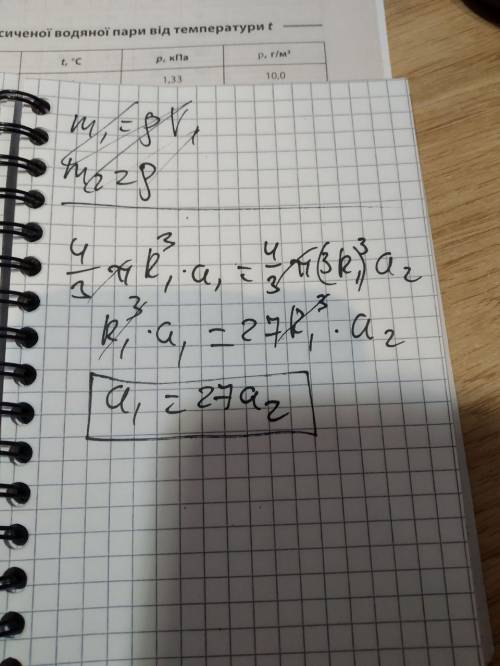 сиченої водяної пари від температури t
t, °C p, кПа ρ, г/м³
1,33 10,0
m₁ = ρ V₁
m₂ = ρ
4/3 π R₁³ · a₁ = 4/3 π (3R₁)³ a₂
R₁³ · a₁ = 27R₁³ · a₂
a₁ = 27a₂